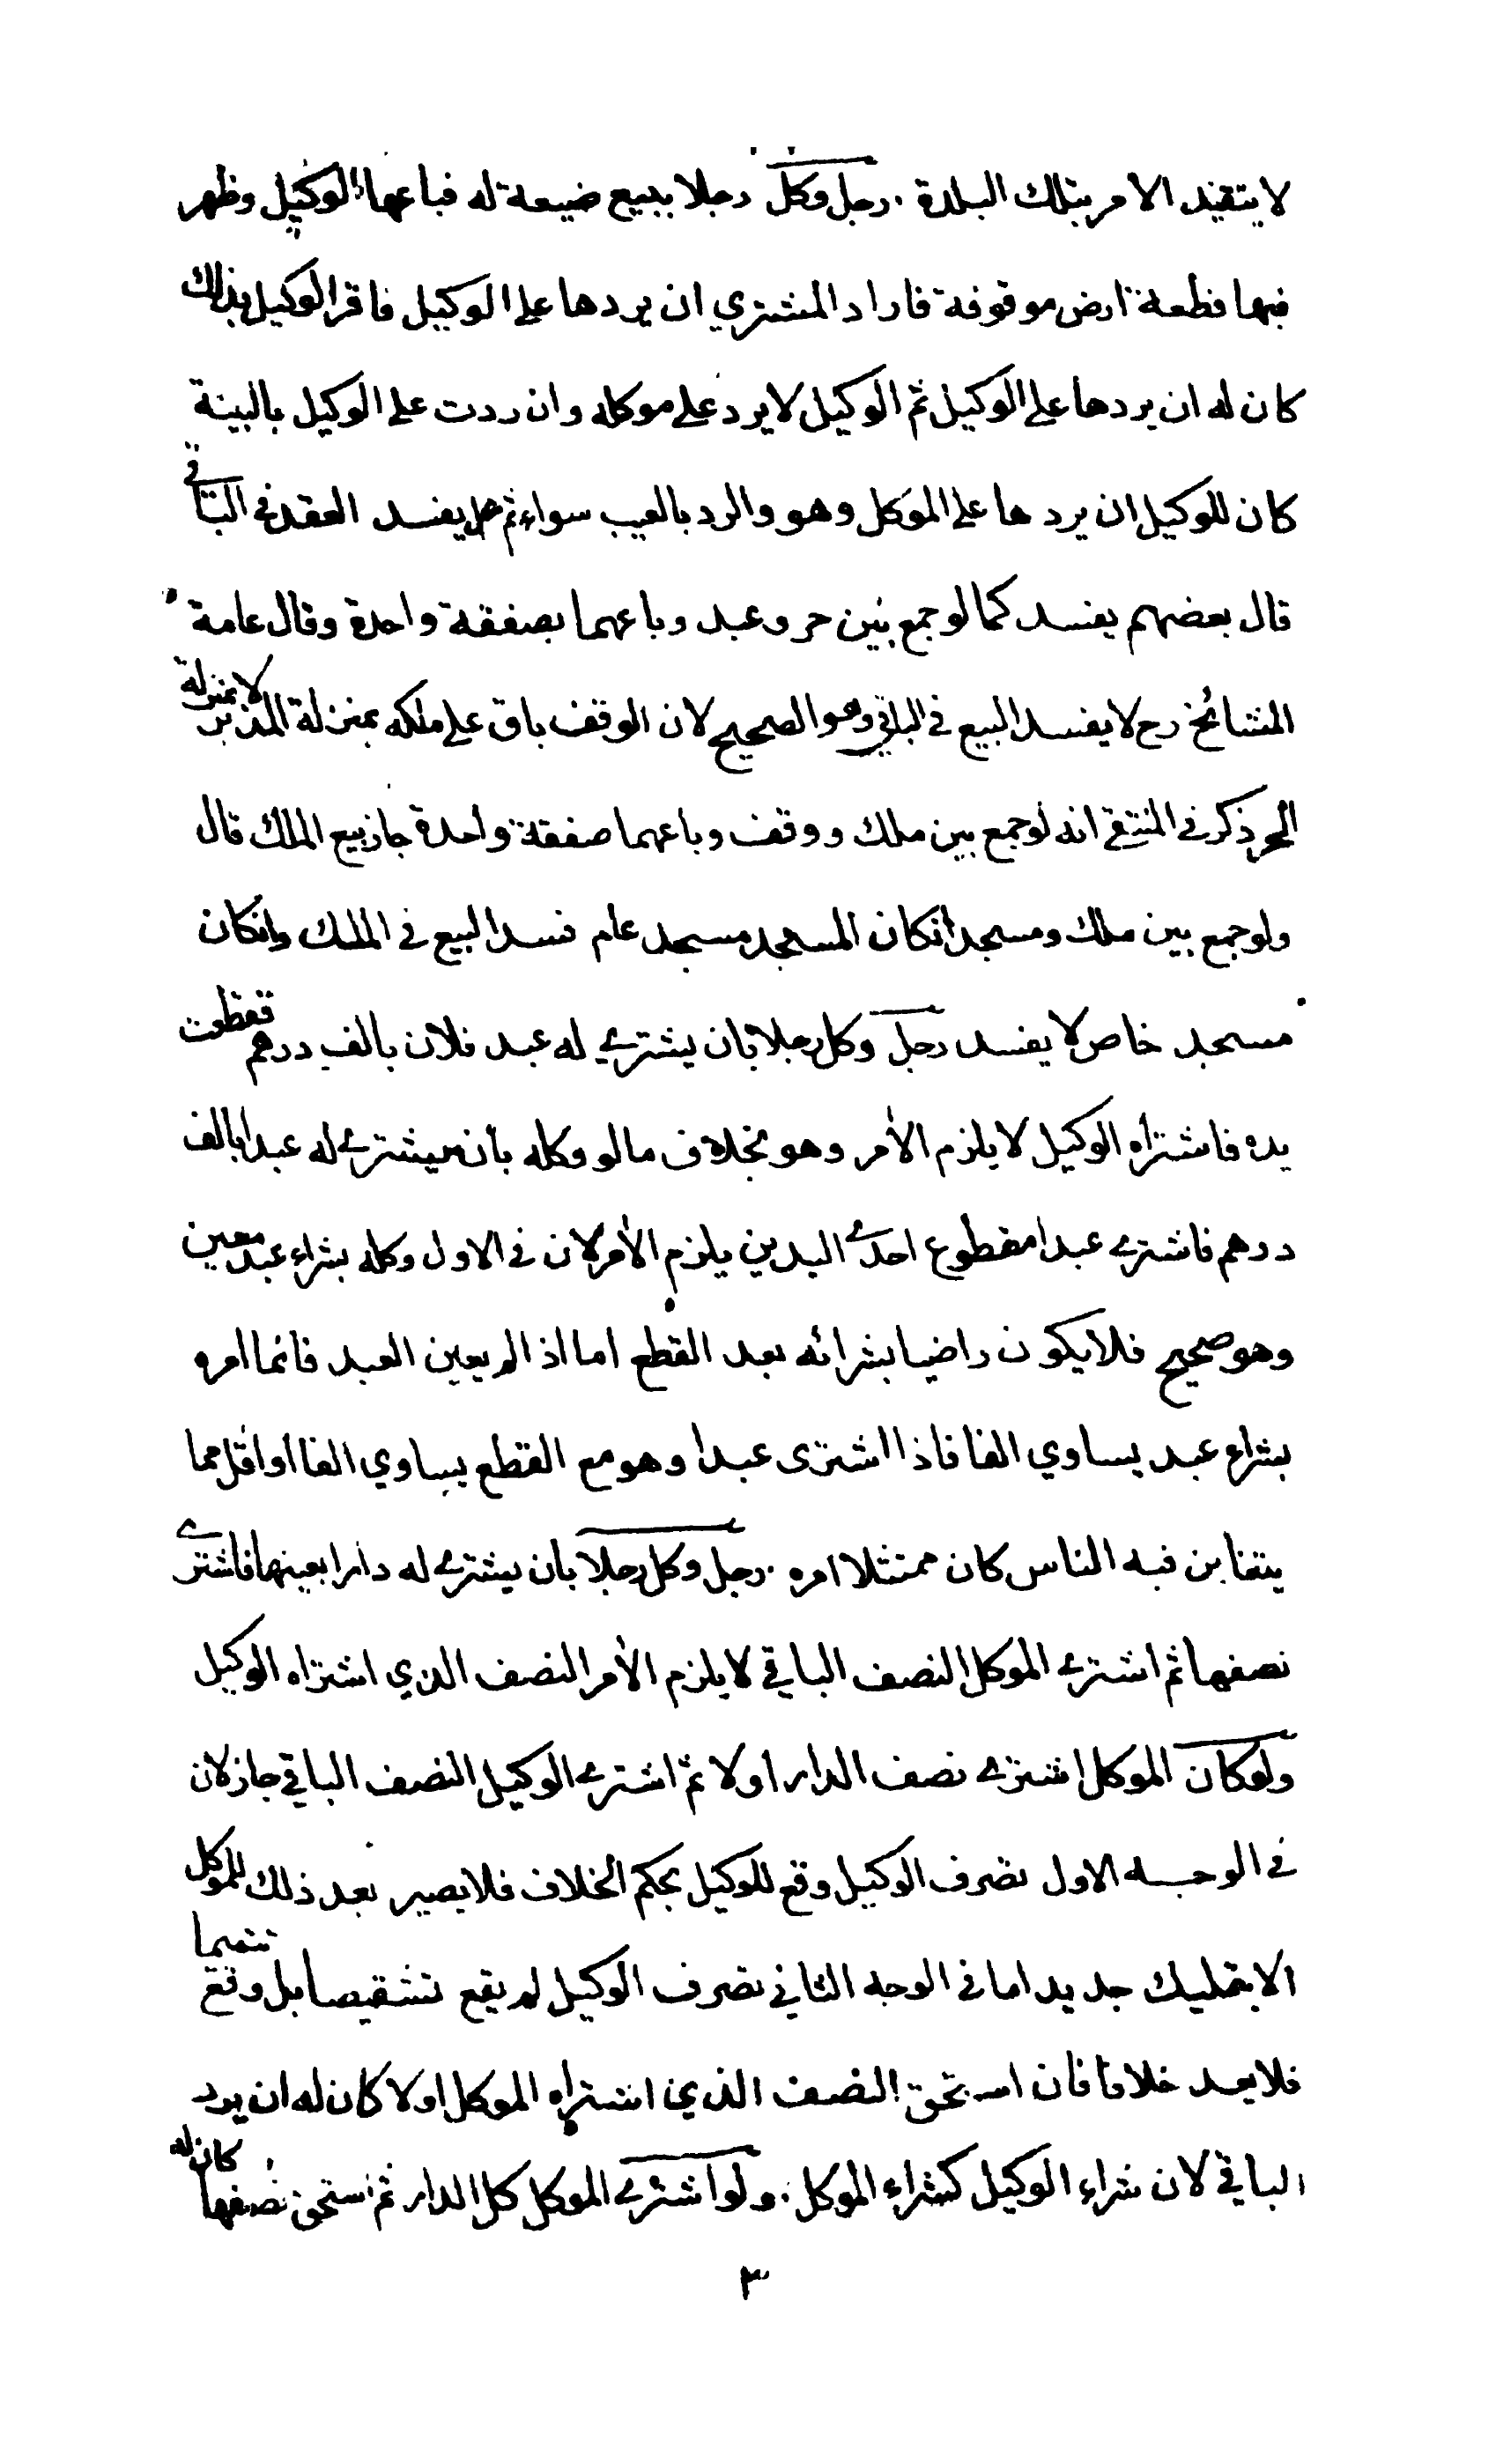 لا يتقيد الامر بتلك البلدة . رجل وكل رجلا ببيع ضيعة له فباعها الوكيل وظهر
فيها قطعة ارض موقوفة فاراد المشتري ان يردها على الوكيل فاقر الوكيل بذلك
كان له ان يردها على الوكيل ثم الوكيل لا يرد على موكله وان ردت على الوكيل بالبينة
كان للوكيل ان يردها على الموكل وهو والرد بالعيب سواء ثم هل يفسد العقد في الباقي
قال بعضهم يفسد كما لو جمع بين حر وعبد وباعهما بصفقة واحدة وقال عامة
المشائخ رح لا يفسد البيع في الباقي وهو الصحيح لان الوقف باق على ملكه بمنزلة المدبر لا بمنزلة
الحر ذكر في المنتقى انه لو جمع بين ملك ووقف وباعهما صفقة واحدة جاز بيع الملك قال
ولو جمع بين ملك ومسجد انكان المسجد مسجد عام فسد البيع في الملك وانكان
مسجد خاص لا يفسد رجل وكل رجلا بان يشتري له عبد فلان بالف درهم فقطعت
يده فاشتراه الوكيل لا يلزم الآمر وهو بخلاف ما لو وكله بان يشتري له عبدا بالف
درهم فاشترى عبدا مقطوع احدى اليدين يلزم الآمر لان في الاول وكله بشراء عبد معين
وهو صحيح فلا يكون راضيا بشرائه بعد القطع اما اذا لم يعين العبد فانما امره
بشراء عبد يساوي الفا فاذا اشترى عبدا وهو مع القطع يساوي الفا او اقل مما
يتغابن فيه الناس كان ممتثلا امره . رجل وكل رجلا بان يشتري له دارا بعينها فاشترى
نصفها ثم اشترى الموكل النصف الباقي لا يلزم الآمر النصف الذي اشتراه الوكيل
ولو كان الموكل اشترى نصف الدار اولا ثم اشترى الوكيل النصف الباقي جاز لان
في الوجه الاول تصرف الوكيل وقع للوكيل بحكم الخلاف فلا يصير بعد ذلك للموكل
الا بتمليك جديد اما في الوجه الثاني تصرف الوكيل لم يقع تشقيصا بل وقع تتميما
فلا يعد خلافا فان استحق النصف الذي اشتراه الموكل اولا كان له ان يرد
الباقي لان شراء الوكيل كشراء الموكل . ولو اشترى الموكل كل الدار ثم استحق نصفها كان له
٣